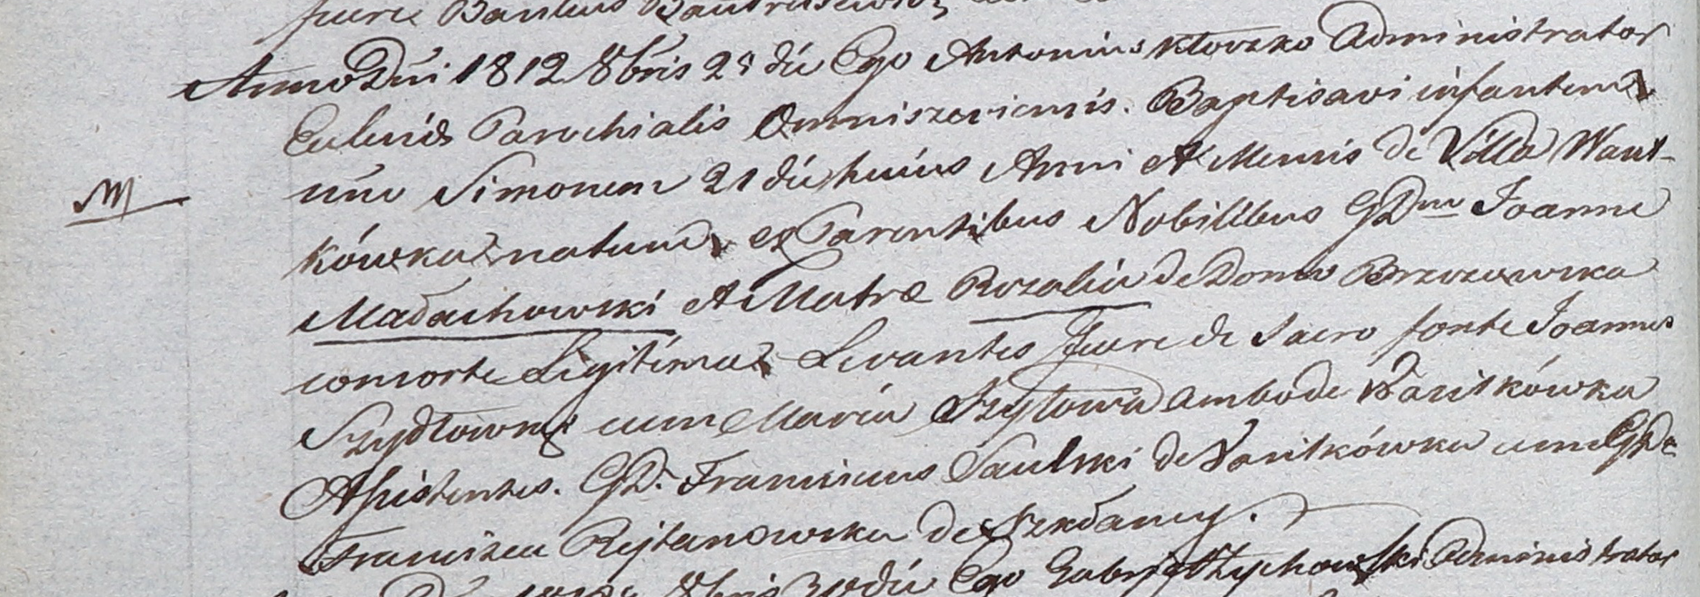 fuere
Anno Dni 1812 8bris 28 die Ego Antonius Kłoszko Administrator
Eccleniæ Parochialis Omniszeviensis. Baptisavi infantem
nne Simonem 21 die huius Anni et Mensis de Villa Want-
kówka natum, ex Parentibus Nobilibus GD Joanne
Małachowski et Matre Rozalia de Domo Brzozowska
consorte Legitima. Levantes fuere de Sacro fonte Joannes
Szydłowsk cum Maria Szytowa ambo de Wasilkówka
Assistentes. GD. Franciscus Saulski de Wasilkówka cum GD
Francisca Rejtanowska de Szkdancy.
8bris die Ego Gabryel Administrator